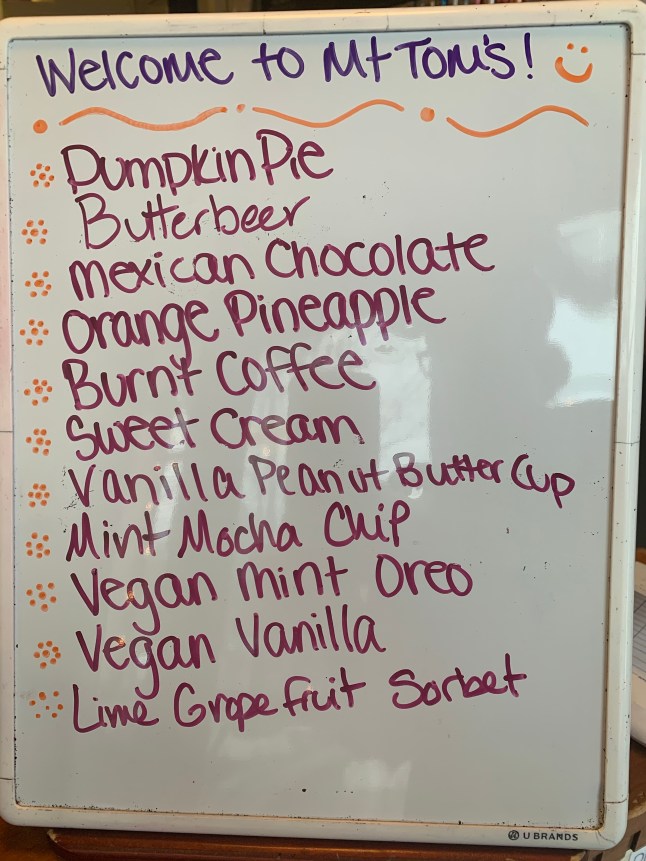 Welcome to Mt Tom's!
Pumpkin Pie
Butterbeer
Mexican Chocolate
Orange Pineapple
Burnt Coffee
Sweet Cream
Vanilla Peanut Butter Cup
Mint Mocha Chip
Vegan Mint Oreo
Vegan Vanilla
Lime Grapefruit Sorbet
U BRANDS